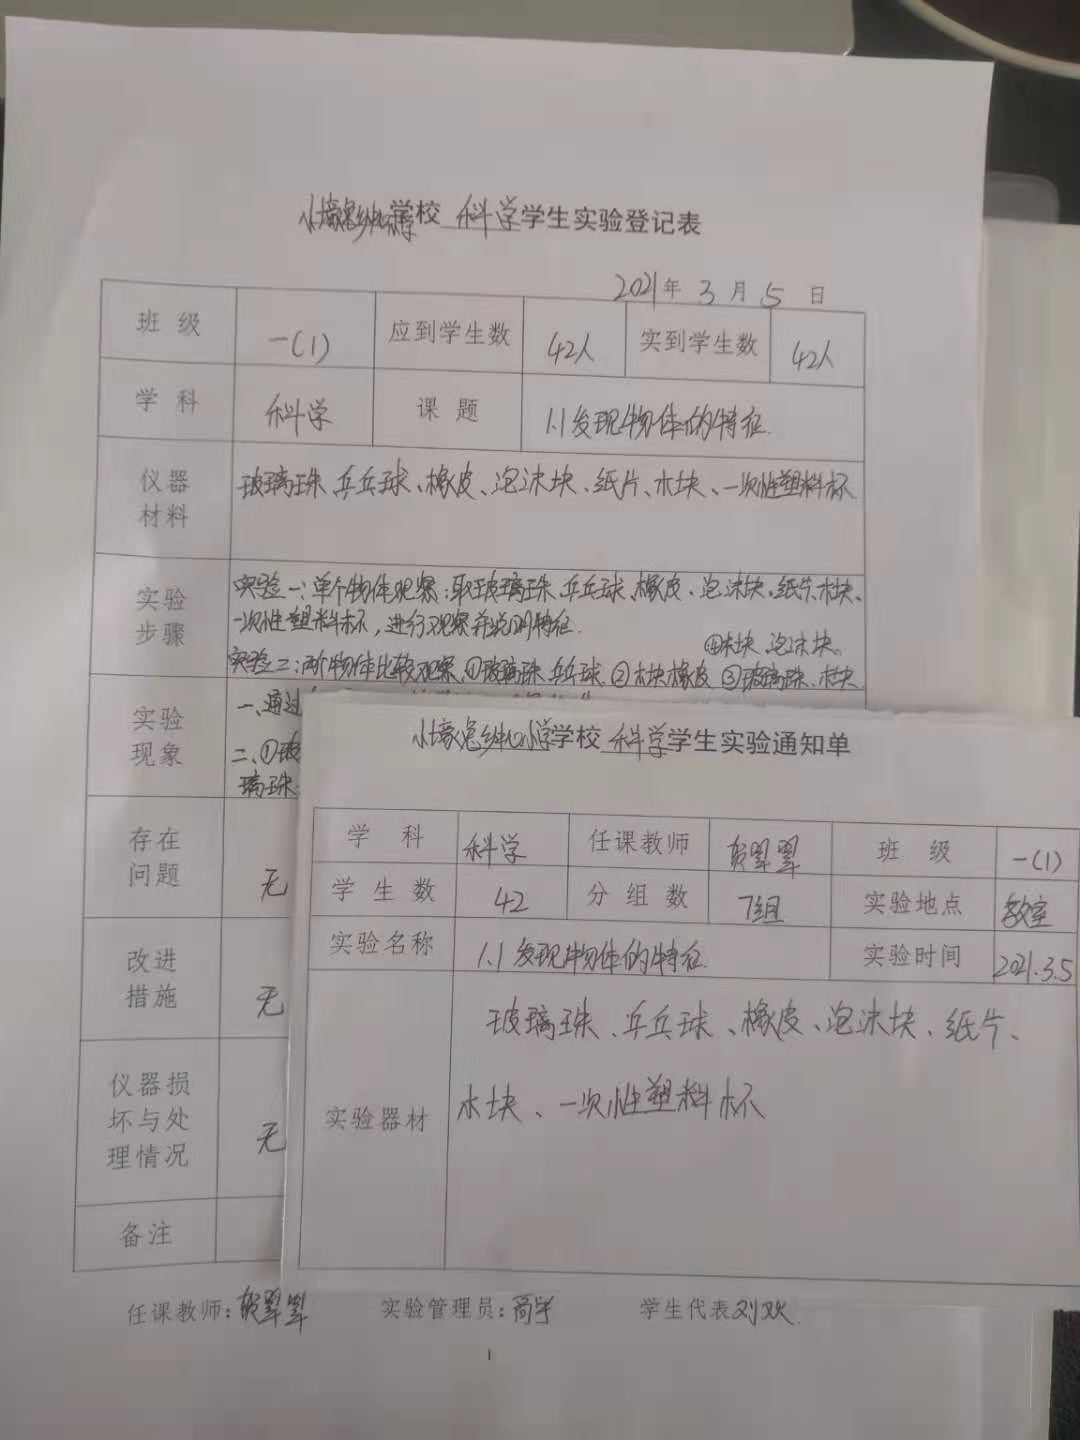 小壕兔乡中心小学学校 科学学生实验登记表
2021年 3 月 5 日
班 级 一(1) 应到学生数 42人 实到学生数 42人
学 科 科学 课 题 1.1发现物体的特征
仪器材料 玻璃珠、乒乓球、橡皮、泡沫块、纸片、木块、一次性塑料杯
实验步骤 实验一:单个物体观察:取玻璃珠、乒乓球、橡皮、泡沫块、纸片、木块、
一次性塑料杯,进行观察并说明特征.
④木块、泡沫块。
实验二:两个物体比较观察,①玻璃珠、乒乓球 ②木块橡皮 ③玻璃珠、木块
实验现象 一、通过
二、①玻
璃珠
存在问题 无
改进措施 无
仪器损坏与处理情况 无
备注
任课教师: 实验管理员: 学生代表刘欢
小壕兔乡中心小学学校 科学学生实验通知单
学 科 科学 任课教师 班 级 一(1)
学 生 数 42 分 组 数 7组 实验地点 教室
实验名称 1.1发现物体的特征 实验时间 2021.3.5
实验器材 玻璃珠、乒乓球、橡皮、泡沫块、纸片、
木块、一次性塑料杯